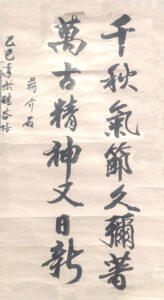 千秋氣節久彌著
萬古精神又日新
蔣介石
己巳年於